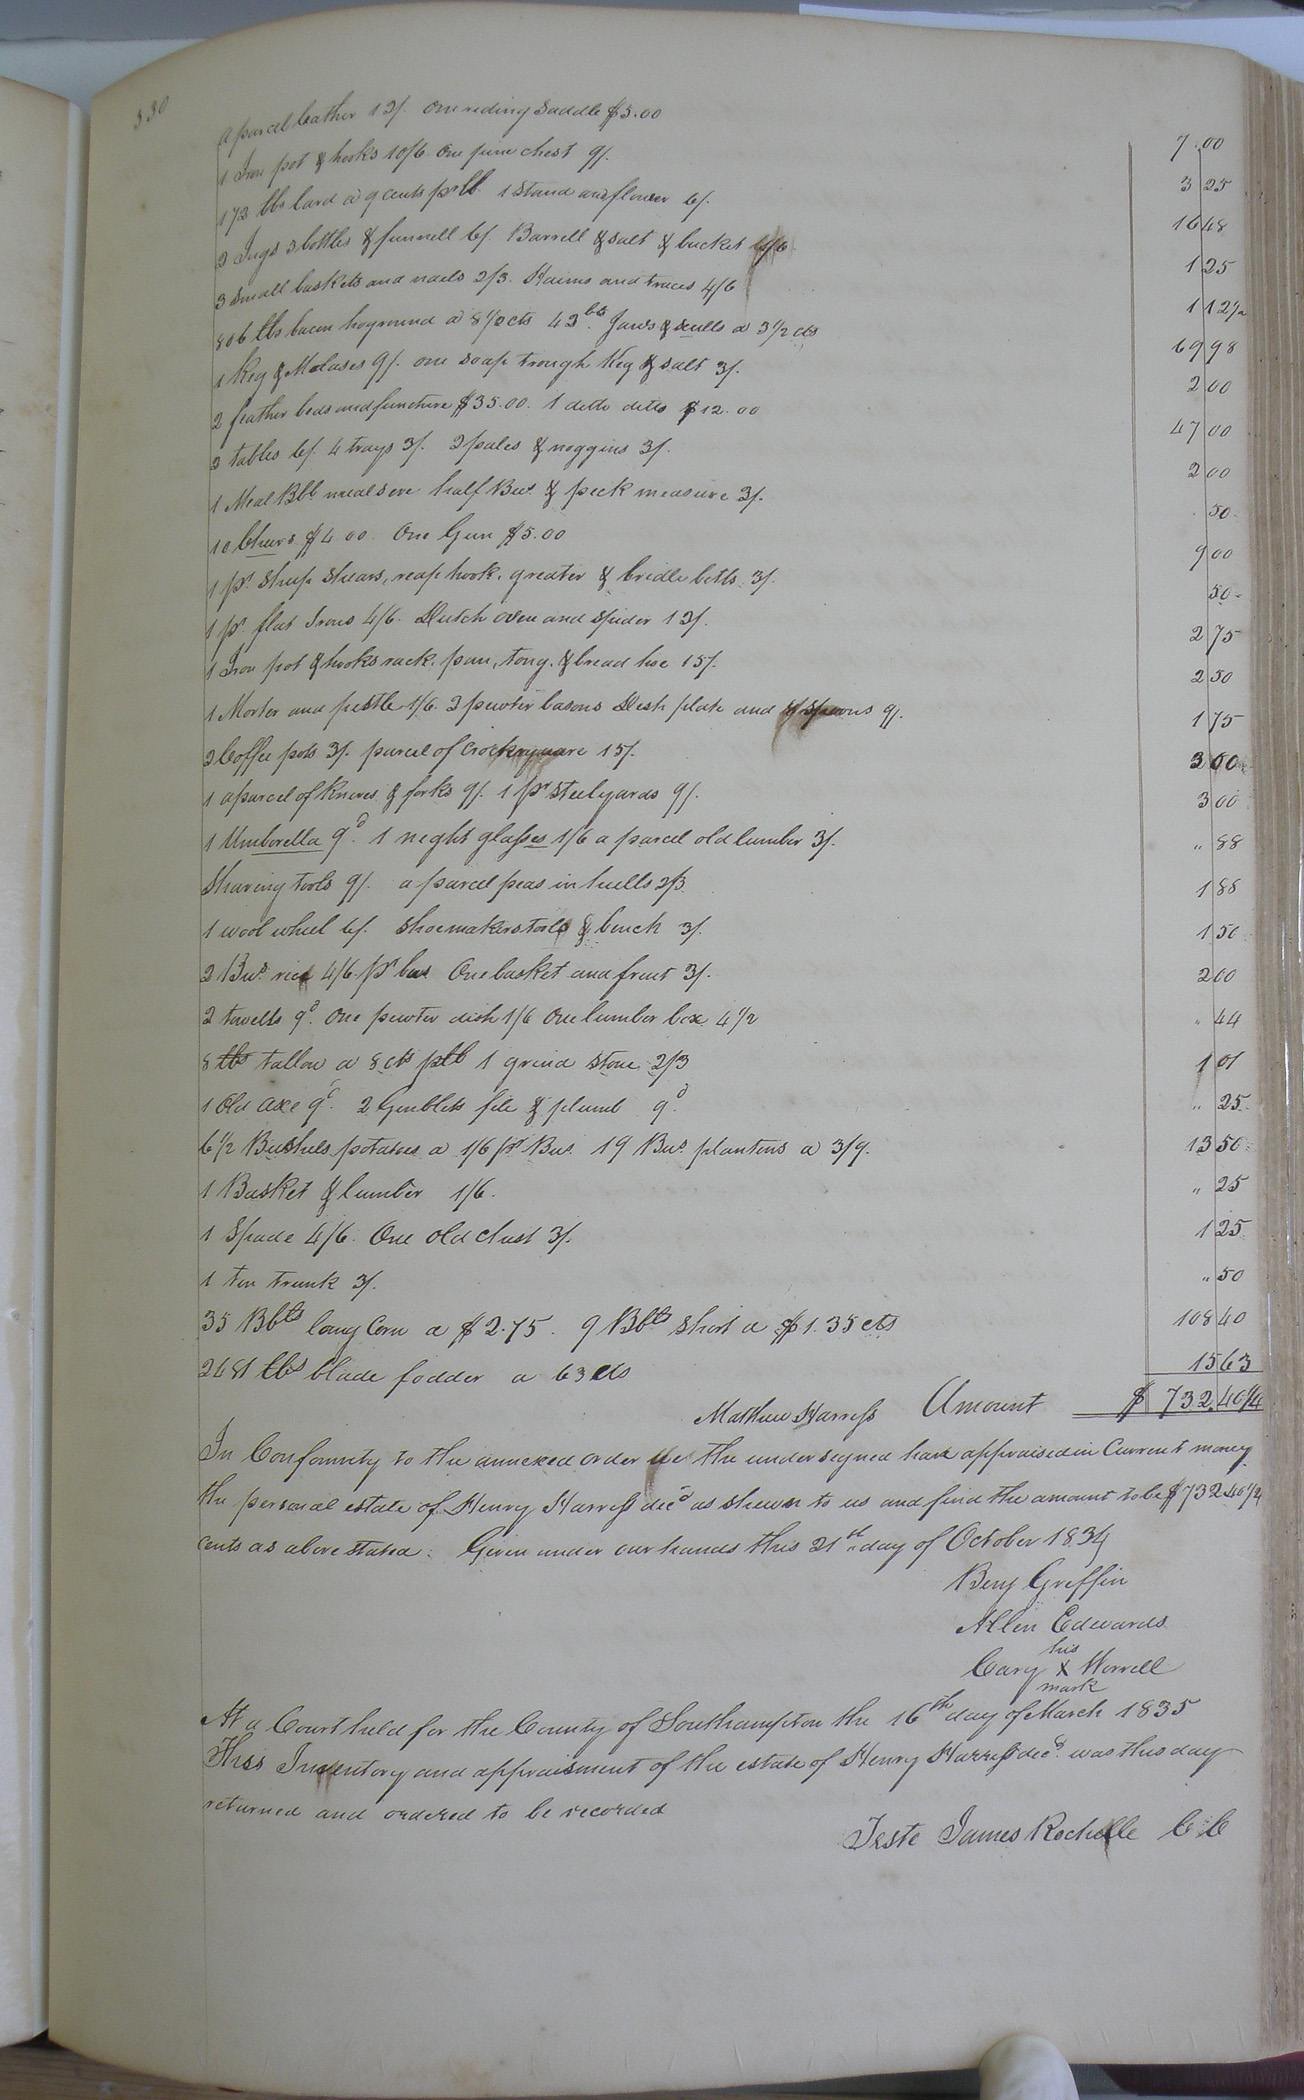 330
a parcel leather 12/. One reding Saddle $5.00 7.00
1 Iron pot & hooks 10/6 One pine chest 9/. 3 25
172 lbs lard a 9 cents pr lb 1 Stand and flower 6/. 16 48
2 Jugs 3 bottles & funnell 6/. Barrell & salt & bucket 1/6 1 25
3 Small baskets and nails 2/3. Haims and traces 4/6 1 12 1/2
806 lbs bacon hoground a 8 1/2 cts 43 lbs Jaws & sculls a 3 1/2 cts 69 98
1 Keg & Molases 9/. one soap trough Keg & salt 3/. 2 00
2 feather beds and functure $35.00. 1 ditto ditto $12.00 47 00
3 tables 6/. 4 trays 3/. 2 pales & noggins 3/. 2 00
1 Meal Bbl meal seve half Bus. & peck measure 3/. 50
10 Chears $4 00. One Gun $5.00 9 00
1 pr. Sheep Shears, reap hook, greater & bridle betts 3/. 50
1 pr. flat Irons 4/6. Dutch oven and Spider 12/. 2 75
1 Iron pot & hooks rack, pan, tong, & bread hoe 15/. 2 50
1 Morter and pestle 1/6. 3 pewter basons Desh plate and Spoons 9/. 1 75
2 Coffee pots 3/. parcel of Crockryware 15/. 3 00
1 a parcel of Knives & forks 9/. 1 pr steelyards 9/. 3 00
1 Umborella 9d. 1 neght glasses 1/6 a parcel old lumber 3/. " 88
Shaving tools 9/. a parcel peas in hulls 2/3 1 88
1 wool wheel 6/. Shoemakers tools & bench 3/. 1 50
2 Bus. rice 4/6. pr bus One basket and fruit 3/. 2 00
2 towells 9d. One pewter dish 1/6 One lumber box 4 1/2 " 44
8 lbs tallow a 8 cts p lb 1 grind stone 2/3 1 01
1 Old axe 9d. 2 Gemblets file & plumb 9d. " 25
6 1/2 Bushels potatoes a 1/6 pr Bus. 19 Bus. plantens a 3/9. 13 50
1 Basket & lumber 1/6. " 25
1 Spade 4/6. One old chest 3/. 1 25
1 ten trunk 3/. " 50
35 Bbls long Corn a $2.75. 9 Bbls Short a $1.35 cts 108 40
2481 lbs blade fodder a 63 cts 15 63
Mathew Harress Amount $ 732.40 1/4
In Conformity to the annexed order We the undersegned have appraised in Current money
the personal estate of Henry Harress decd as shewn to us and find the amount to be $732 40 1/4
cents as above stated. Given under our hands this 21st day of October 1834
Benj Greffin
Allen Edwards
his
Cary X Worrell
mark
At a Court held for the County of Southampton the 16th day of March 1835
This Inventory and appraisment of the estate of Henry Harress decd. was this day
returned and ordered to be recorded
Teste James Rochelle C C